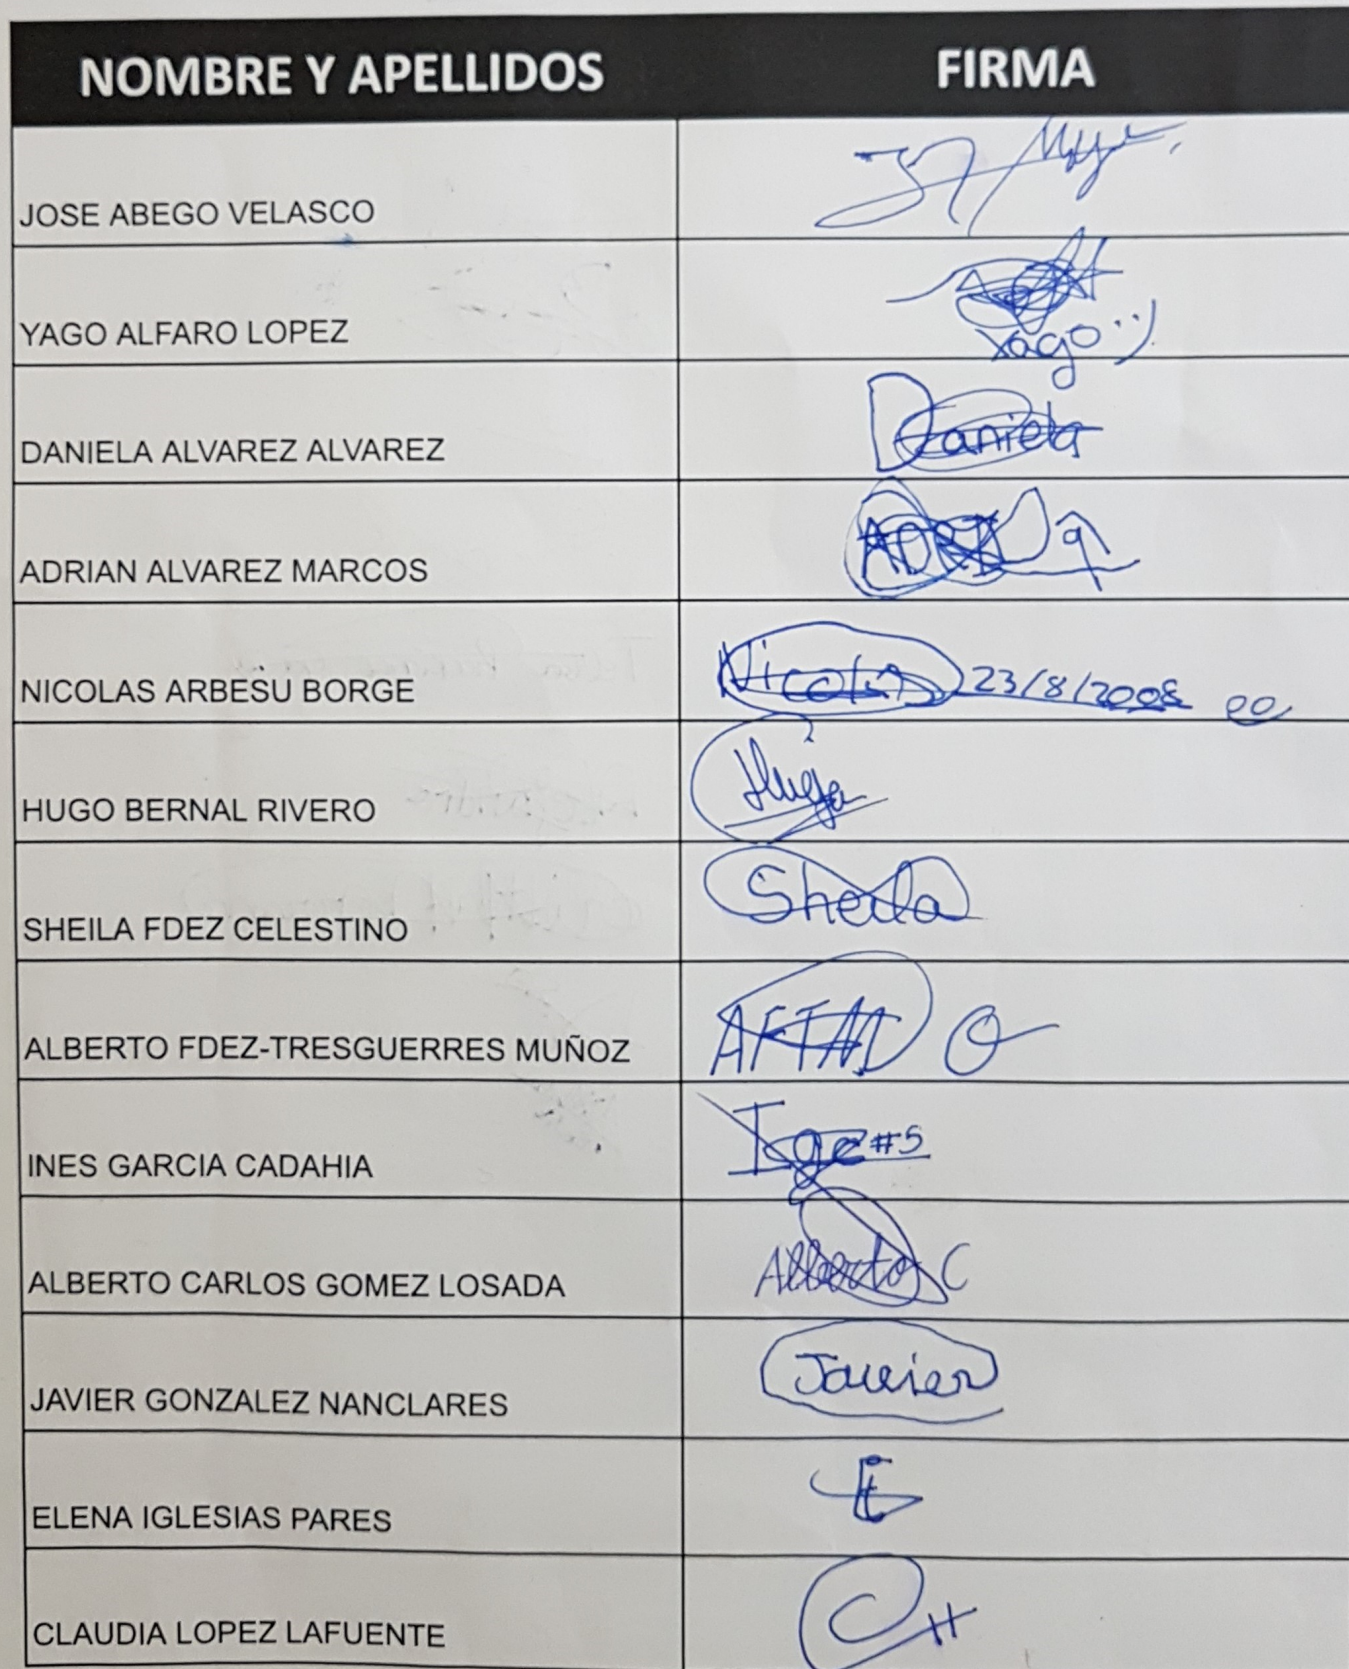 NOMBRE Y APELLIDOS FIRMA
JOSE ABEGO VELASCO
YAGO ALFARO LOPEZ
Yago :)
DANIELA ALVAREZ ALVAREZ Daniela
ADRIAN ALVAREZ MARCOS ADRI
NICOLAS ARBESU BORGE Nicolas 23/8/2008
HUGO BERNAL RIVERO Hugo
SHEILA FDEZ CELESTINO Sheila
ALBERTO FDEZ-TRESGUERRES MUÑOZ AFTM
INES GARCIA CADAHIA Igc #5
ALBERTO CARLOS GOMEZ LOSADA Alberto C
JAVIER GONZALEZ NANCLARES Javier
ELENA IGLESIAS PARES E
CLAUDIA LOPEZ LAFUENTE C